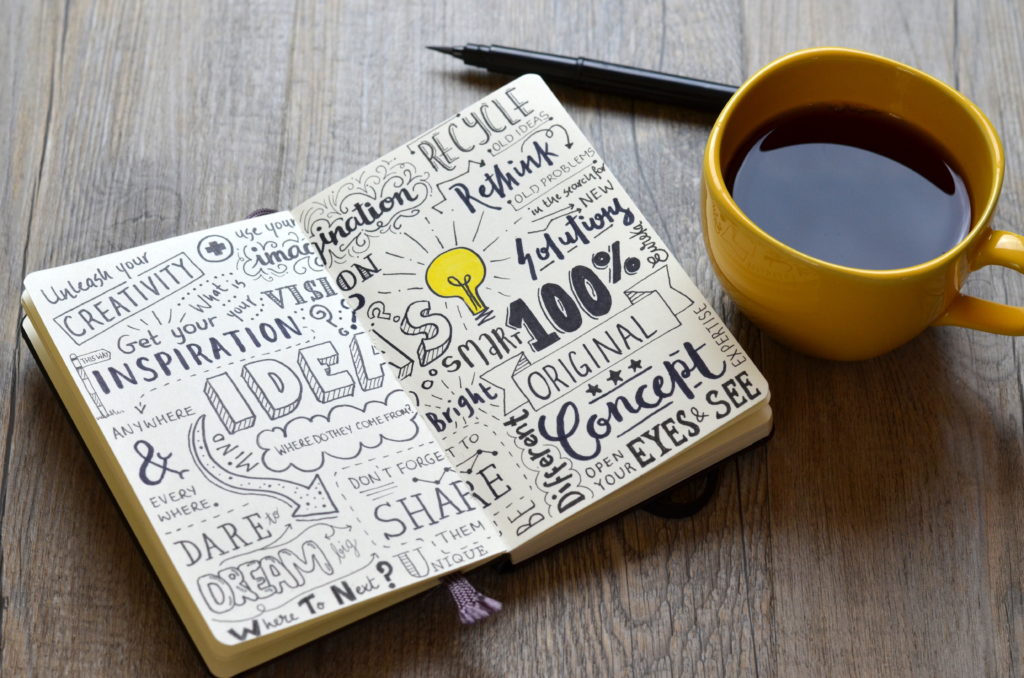 Unleash your
CREATIVITY
use your
imagination
What is
your VISION
?
Get your
INSPIRATION
THIS WAY
ANYWHERE
&
EVERY
WHERE.
IDEAS
MIND
WHERE DO THEY COME FROM?
DON'T FORGET
TO
SHARE
THEM
DARE to
DREAM big
UNIQUE
Where To Next?
RECYCLE
OLD IDEAS
Rethink
OLD PROBLEMS
in the search for
NEW
Solutions
SMART
100%
ORIGINAL
Bright
Concept
EXPERTISE
BE
Different
OPEN
YOUR
EYES & SEE